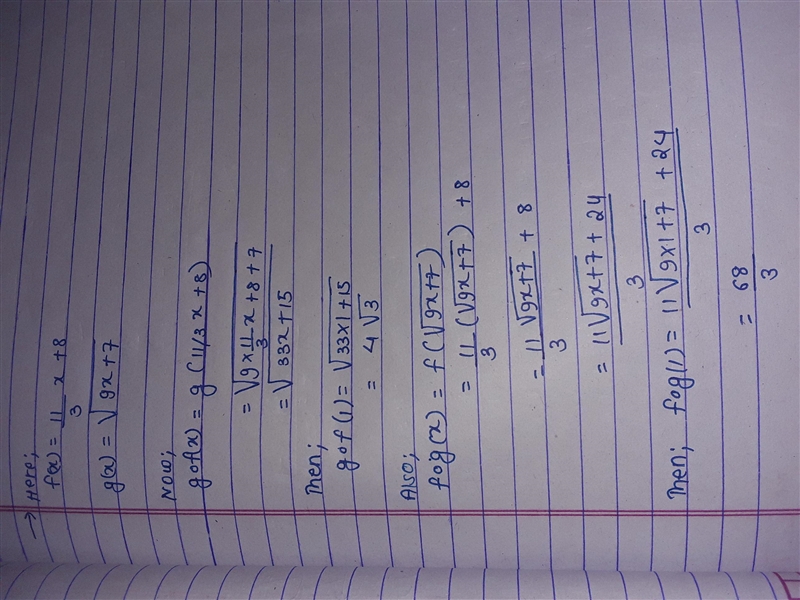 → Here;
f(x) = 11/3 x + 8
g(x) = √(9x+7)
Now;
gof(x) = g (11/3 x + 8)
= √(9×11/3 x + 8 + 7)
= √(33x + 15)
Then;
gof (1) = √(33×1 + 15)
= 4√3
Also;
fog(x) = f(√(9x+7))
= 11/3 (√(9x+7)) + 8
= 11√(9x+7)/3 + 8
= (11√(9x+7) + 24)/3
Then; fog(1) = (11√(9×1+7) + 24)/3
= 68/3